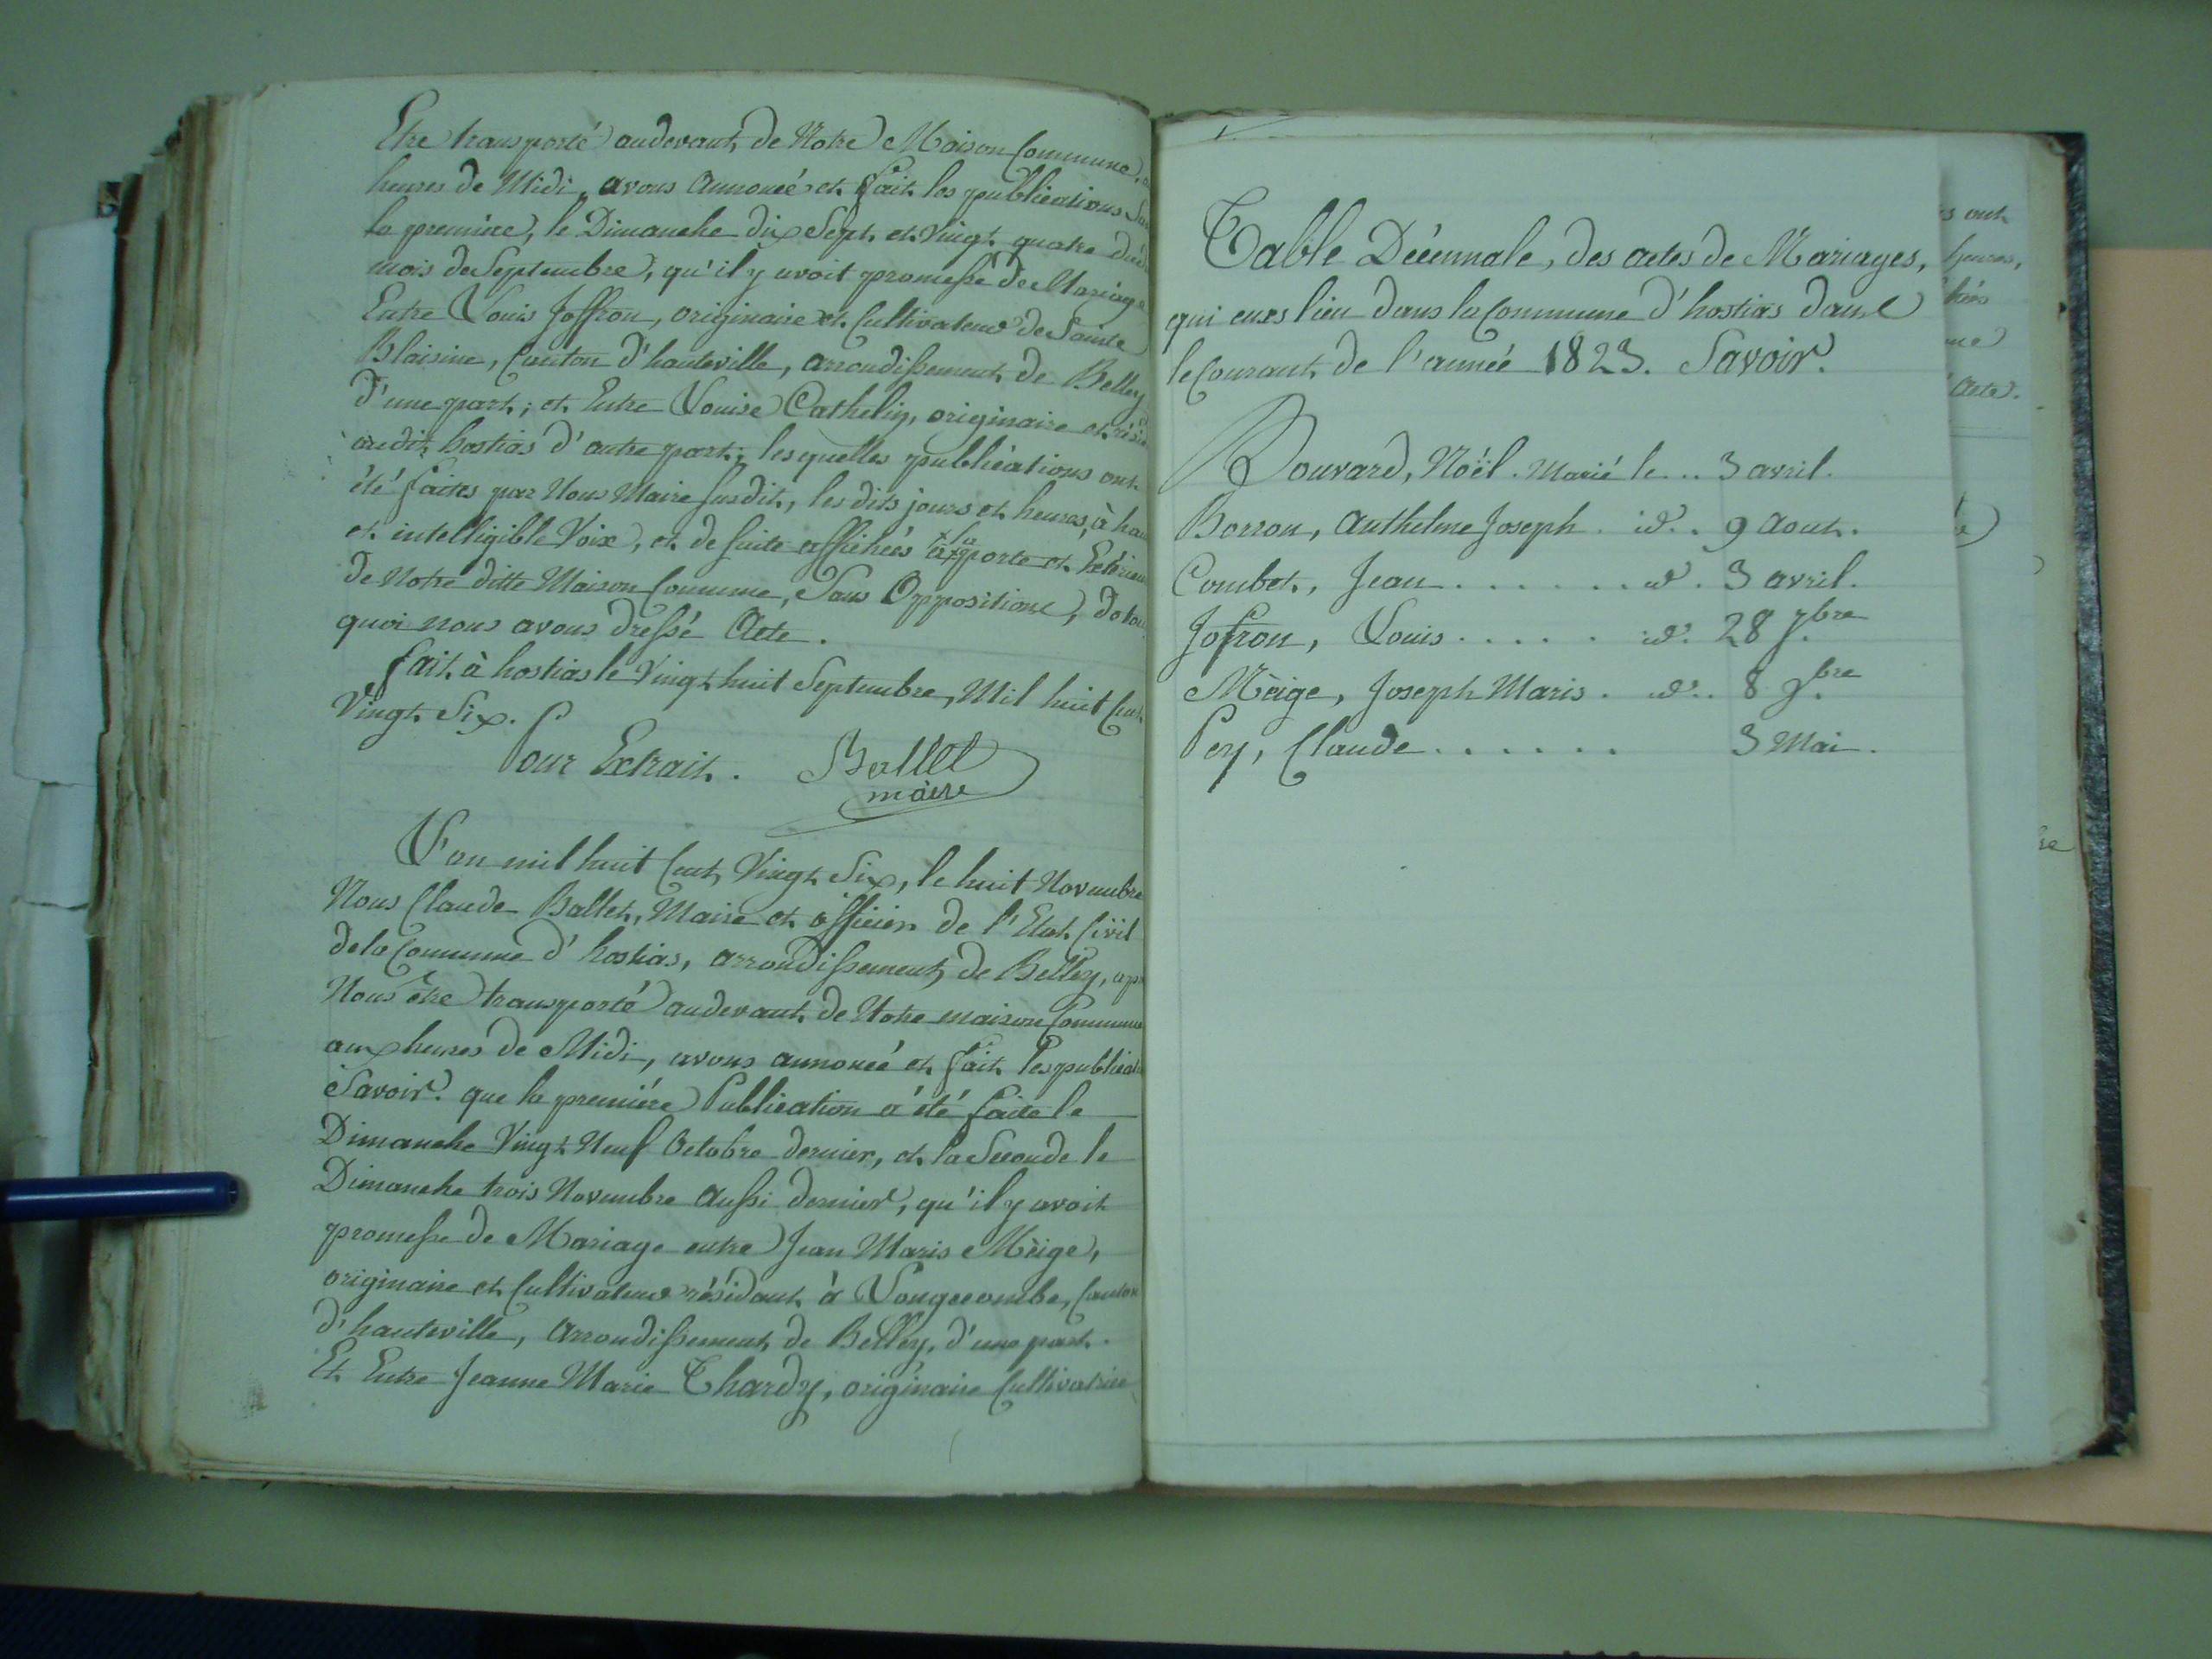 Etre transporté audevant de Notre Maison Commune,
heures de Midi, avons annoncé et fait les publications
la première, le Dimanche dix Sept et Vingt quatre dud
mois de Septembre, qu'il y avoit promesse de Mariage
Entre Louis Joffron, originaire et Cultivateur de Sainte
Blaisine, Canton d'hauteville, arrondissement de Belley
d'une part; et Entre Louise Cathelin, originaire et rési
audit hostias d'autre part; lesquelles publications ont
été faites par Nous Maire susdit, les dits jours et heures, à hau
et intelligible Voix, et de suite affichées à la porte et Extérieu
de Notre ditte Maison Commune, Sans Opposition, de tou
quoi nous avons dressé Acte.
fait à hostias le Vingt huit Septembre, Mil huit Cent
Vingt Six.
Pour Extrait. Ballet
maire
L'an mil huit Cent Vingt Six, le huit Novembre
Nous Claude Ballet, Maire et officier de l'Etat Civil
de la Commune d'hostias, arrondissement de Belley, apr
Nous être transporté audevant de Notre maison Commune
aux heures de Midi, avons annoncé et fait les publicati
Savoir que la première Publication a été faite le
Dimanche Vingt Neuf Octobre dernier, et la Seconde le
Dimanche trois Novembre aussi dernier, qu'il y avoit
promesse de Mariage entre Jean Marie Mèige,
originaire et Cultivateur résidant à Longecombe, Canton
d'hauteville, Arrondissement de Belley, d'une part.
Et Entre Jeanne Marie Chardy, originaire Cultivatrice
Table Décennale, des actes de Mariages,
qui eues lieu dans la Commune d'hostias dans
le Courant de l'année 1823. Savoir.
Bouvard, Noël. Marié le .. 3 avril.
Borron, Anthelme Joseph. id. . 9 Aout.
Combet, Jean ....... id. 3 avril.
Jofron, Louis ..... id. 28 7.bre
Mèige, Joseph Marie. id.. 8 9.bre
Pey, Claude ...... 3 Mai.
s ont
heures,
me
Acte.